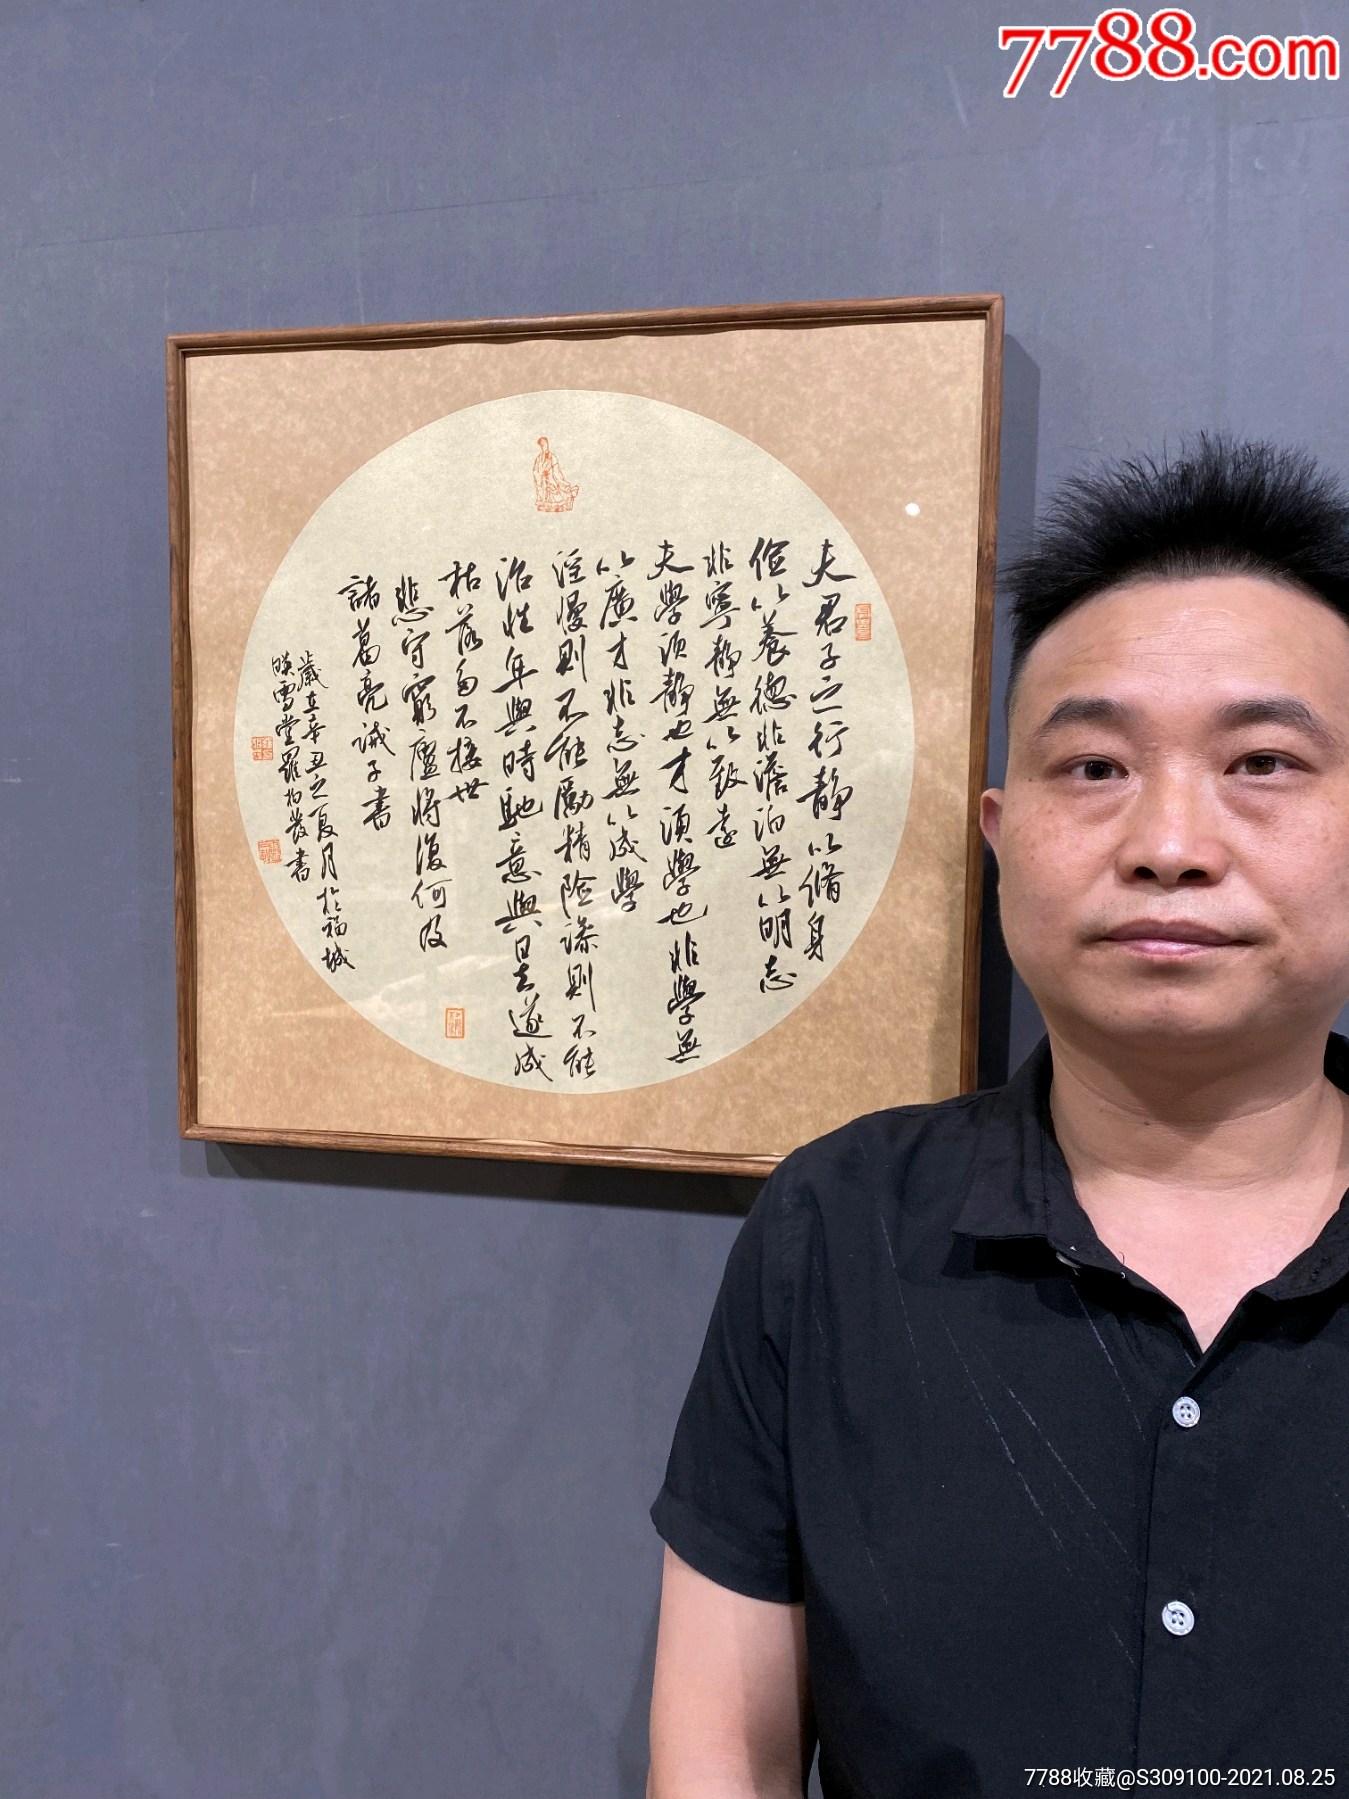 7788.com
夫君子之行靜以脩身
儉以養德非澹泊無以明志
非寧靜無以致遠
夫學須靜也才須學也非學無
以廣才非志無以成學
淫慢則不能勵精險躁則不能
治性年與時馳意與日去遂成
枯落多不接世
悲守窮廬將復何及
諸葛亮誡子書
歲在辛丑之夏月於福城
映雪堂羅書
7788收藏@S309100-2021.08.25